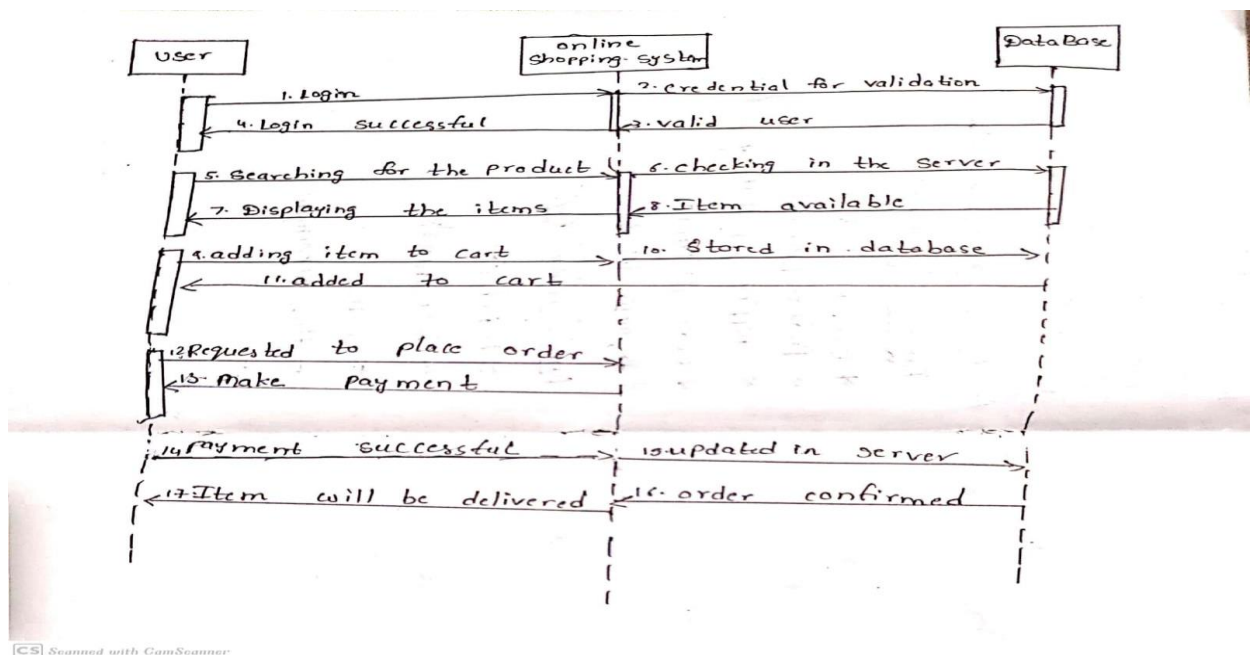 User
online
shopping system
DataBase
1. Login
2. credential for validation
4. Login successful
3. valid user
5. Searching for the product
6. checking in the server
7. Displaying the items
8. Item available
9. adding item to cart
10. Stored in database
11. added to cart
12. Requested to place order
13. make payment
14. Payment successful
15. updated in server
17. Item will be delivered
16. order confirmed
CS Scanned with CamScanner